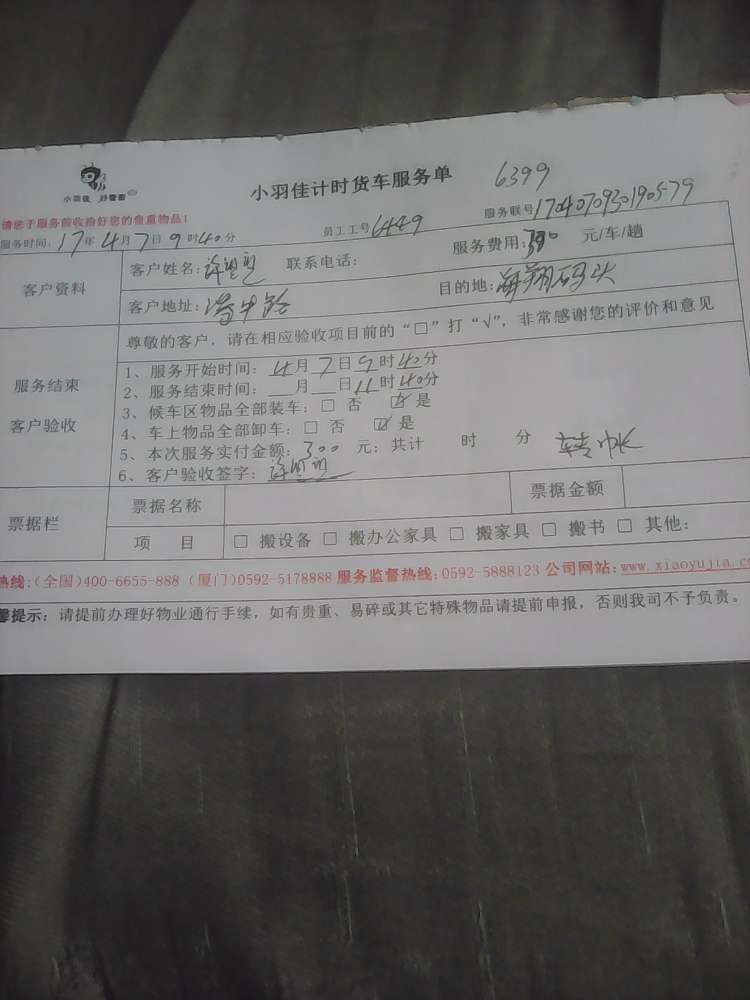 小羽佳 好管家
小羽佳计时货车服务单 6399
请您于服务前收拾好您的贵重物品!
服务时间: 17年4月7日9时40分 员工工号6449 服务联号1704070930190579
客户资料
客户姓名: 联系电话: 服务费用:300 元/车/趟
客户地址: 目的地:海翔码头
尊敬的客户，请在相应验收项目前的“□”打“√”，非常感谢您的评价和意见
服务结束
客户验收
1、服务开始时间: 4月7日9时40分
2、服务结束时间: __月__日11时40分
3、候车区物品全部装车: □ 否 ☑ 是
4、车上物品全部卸车: □ 否 ☑ 是
5、本次服务实付金额: 300 元; 共计 时 分 转帐
6、客户验收签字:
票据栏
票据名称 票据金额
项 目 □ 搬设备 □ 搬办公家具 □ 搬家具 □ 搬书 □ 其他:
热线:(全国)400-6655-888 (厦门)0592-5178888 服务监督热线:0592-5888123 公司网站:www.xiaoyujia.co
馨提示: 请提前办理好物业通行手续，如有贵重、易碎或其它特殊物品请提前申报，否则我司不予负责。